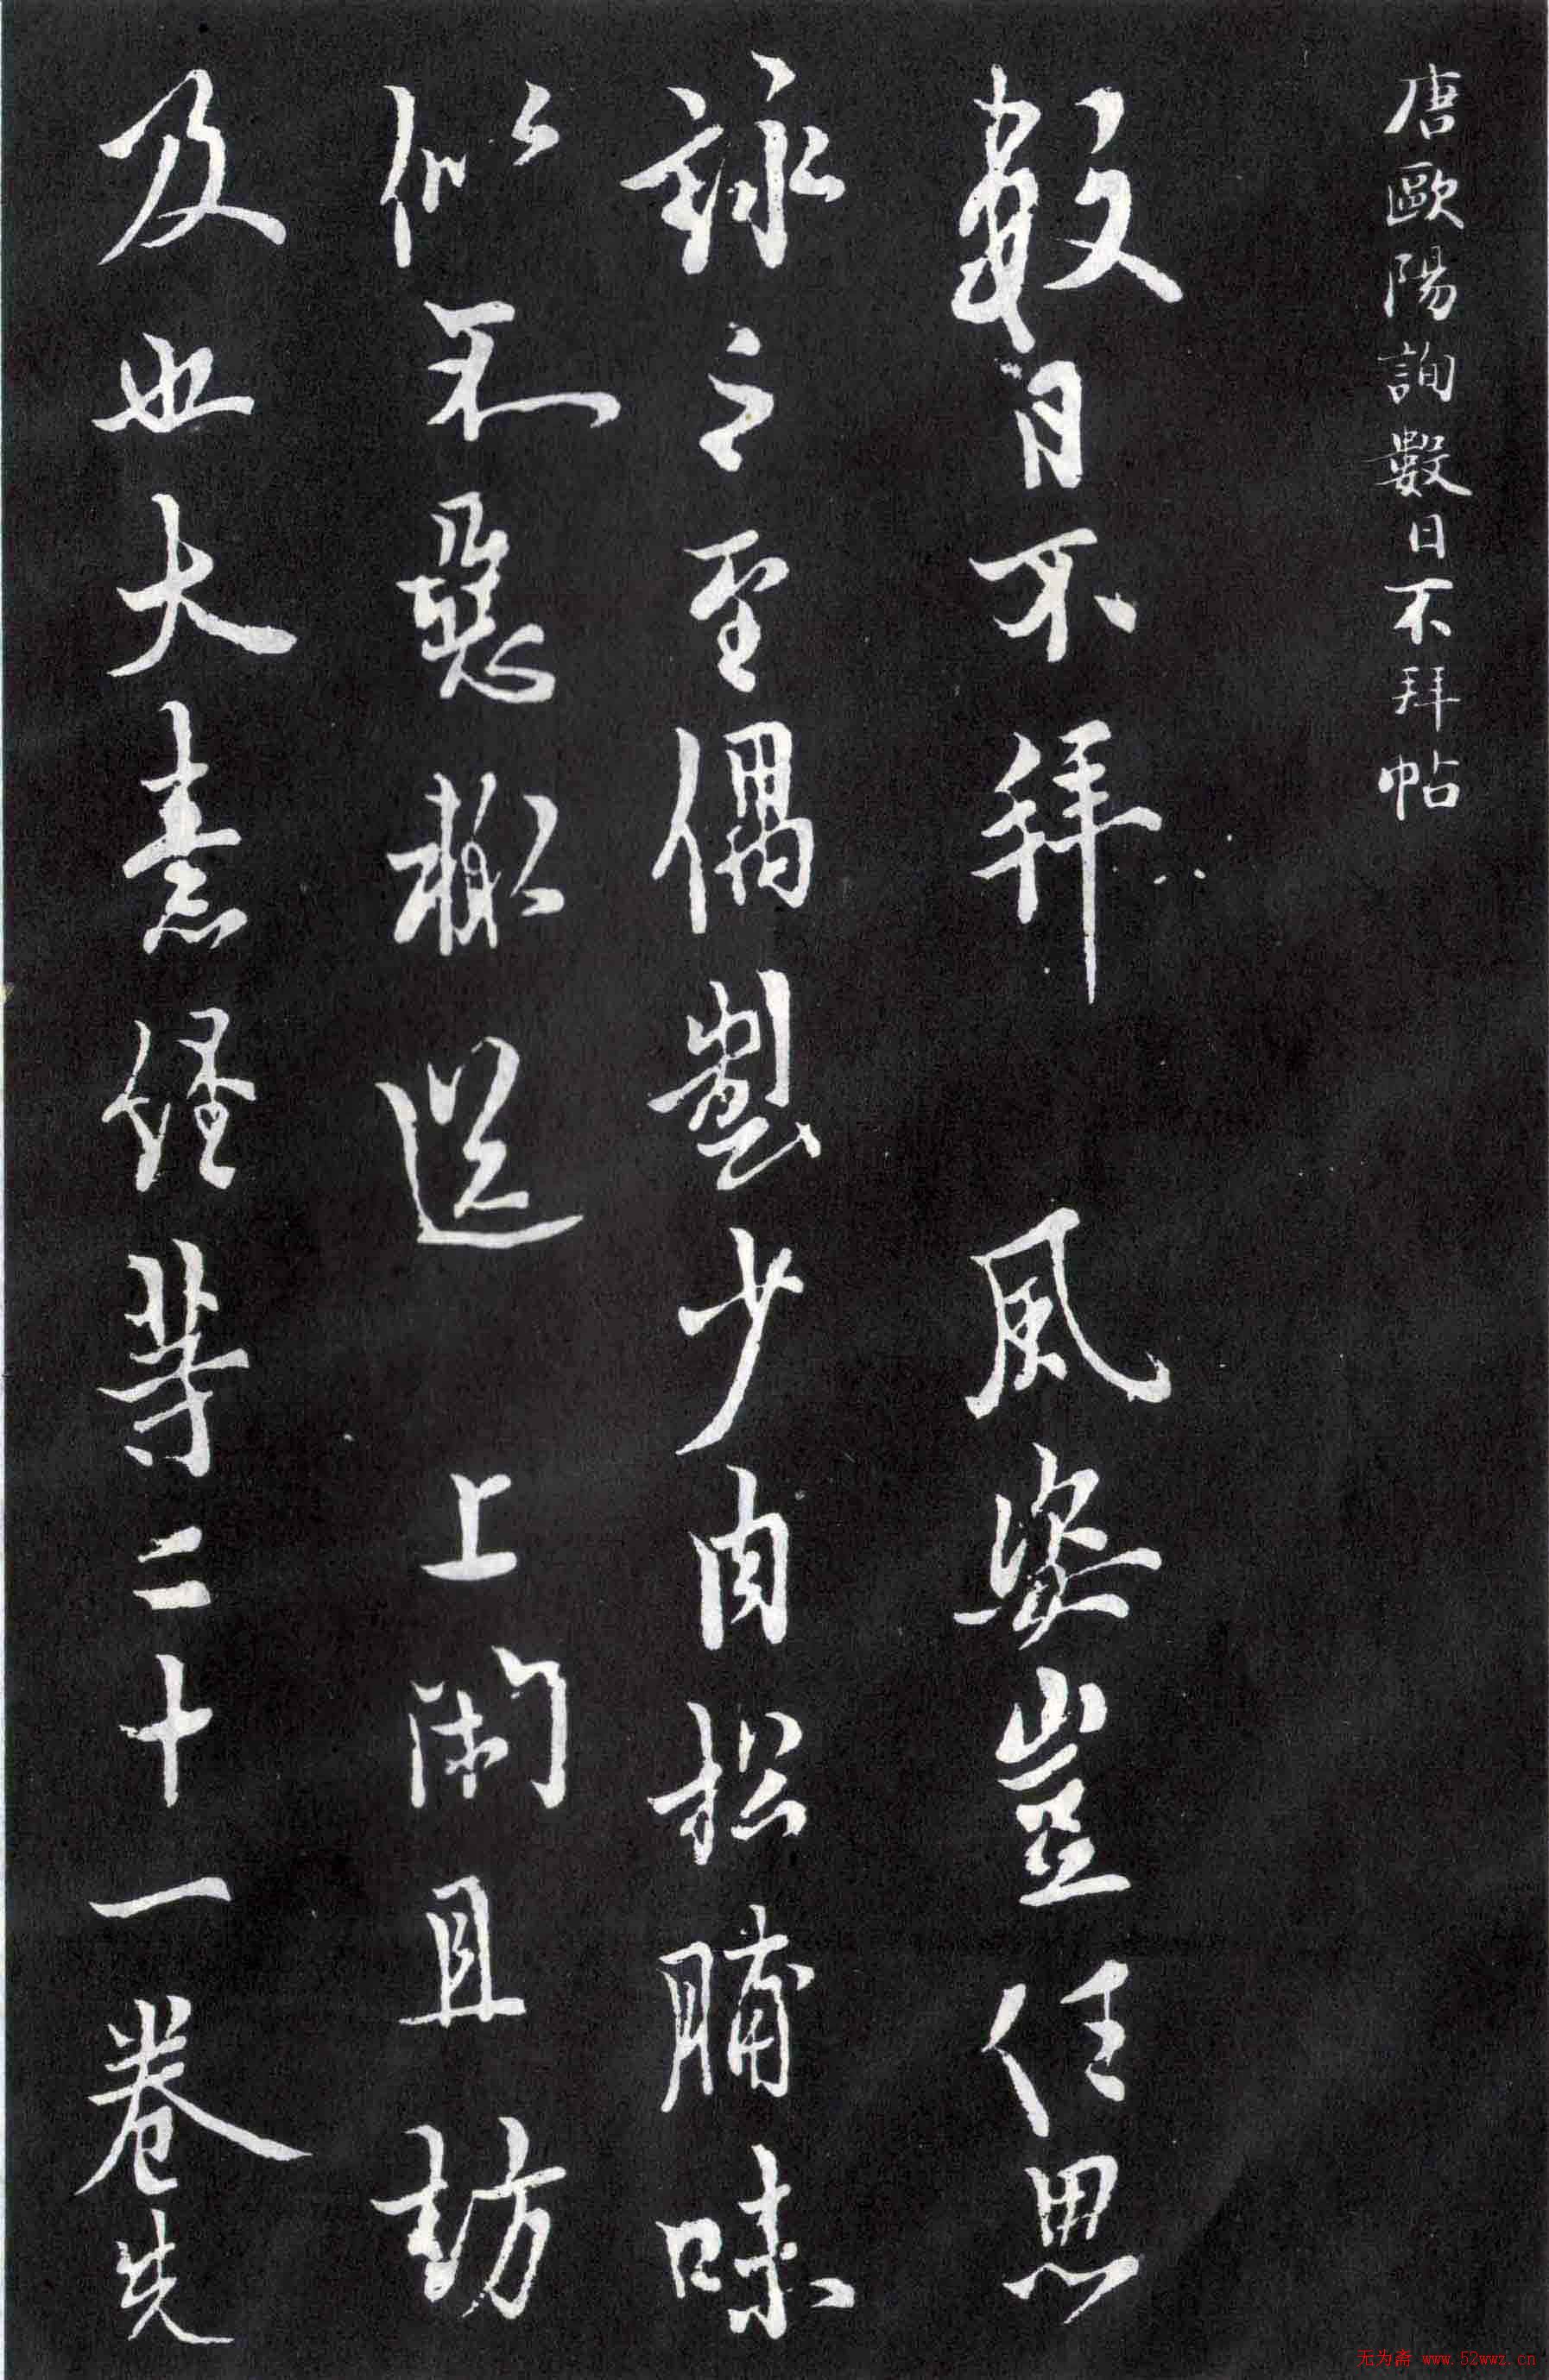 唐歐陽詢數日不拜帖
數日不拜 風姿豈任思
詠之至偶製少肉松脯味
似不惡送 上閑且訪
及也大素經等二十一卷先
无为斋 www.52wwz.cn